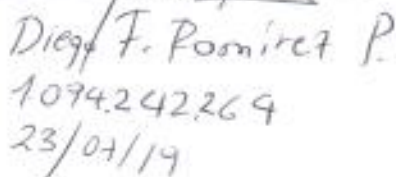 Diego F. Ramirez P.
1094.242.264
23/07/19